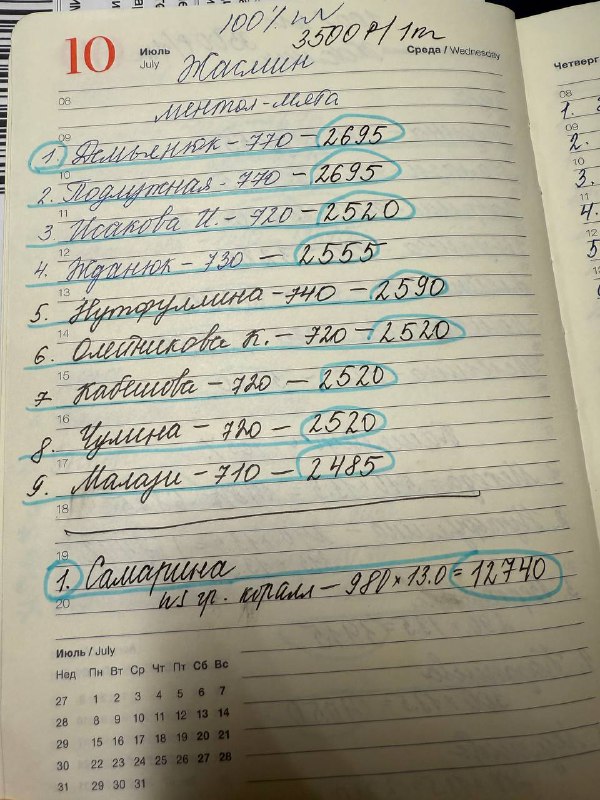 100% ПУ
3500 ₽/1m
10
Июль
July
Жасмин
Среда / Wednesday
08
ментол-мята
09
1. Демьянюк - 770 - 2695
10
2. Подлужная - 770 - 2695
11
3. Исакова И. - 720 - 2520
12
4. Жданюк - 730 - 2555
13
5. Нутфуллина - 740 - 2590
14
6. Олейникова К. - 720 - 2520
15
7. Кабешова - 720 - 2520
16
8. Чулина - 720 - 2520
17
9. Малази - 710 - 2485
18
19
1. Самарина
20
гр. коралл - 980 × 13.0 = 12740
Июль / July
Нед Пн Вт Ср Чт Пт Сб Вс
27 1 2 3 4 5 6 7
28 8 9 10 11 12 13 14
29 15 16 17 18 19 20 21
30 22 23 24 25 26 27 28
31 29 30 31
Четверг
08
1.
09
2.
10
3.
11
4.
12
5
13
6